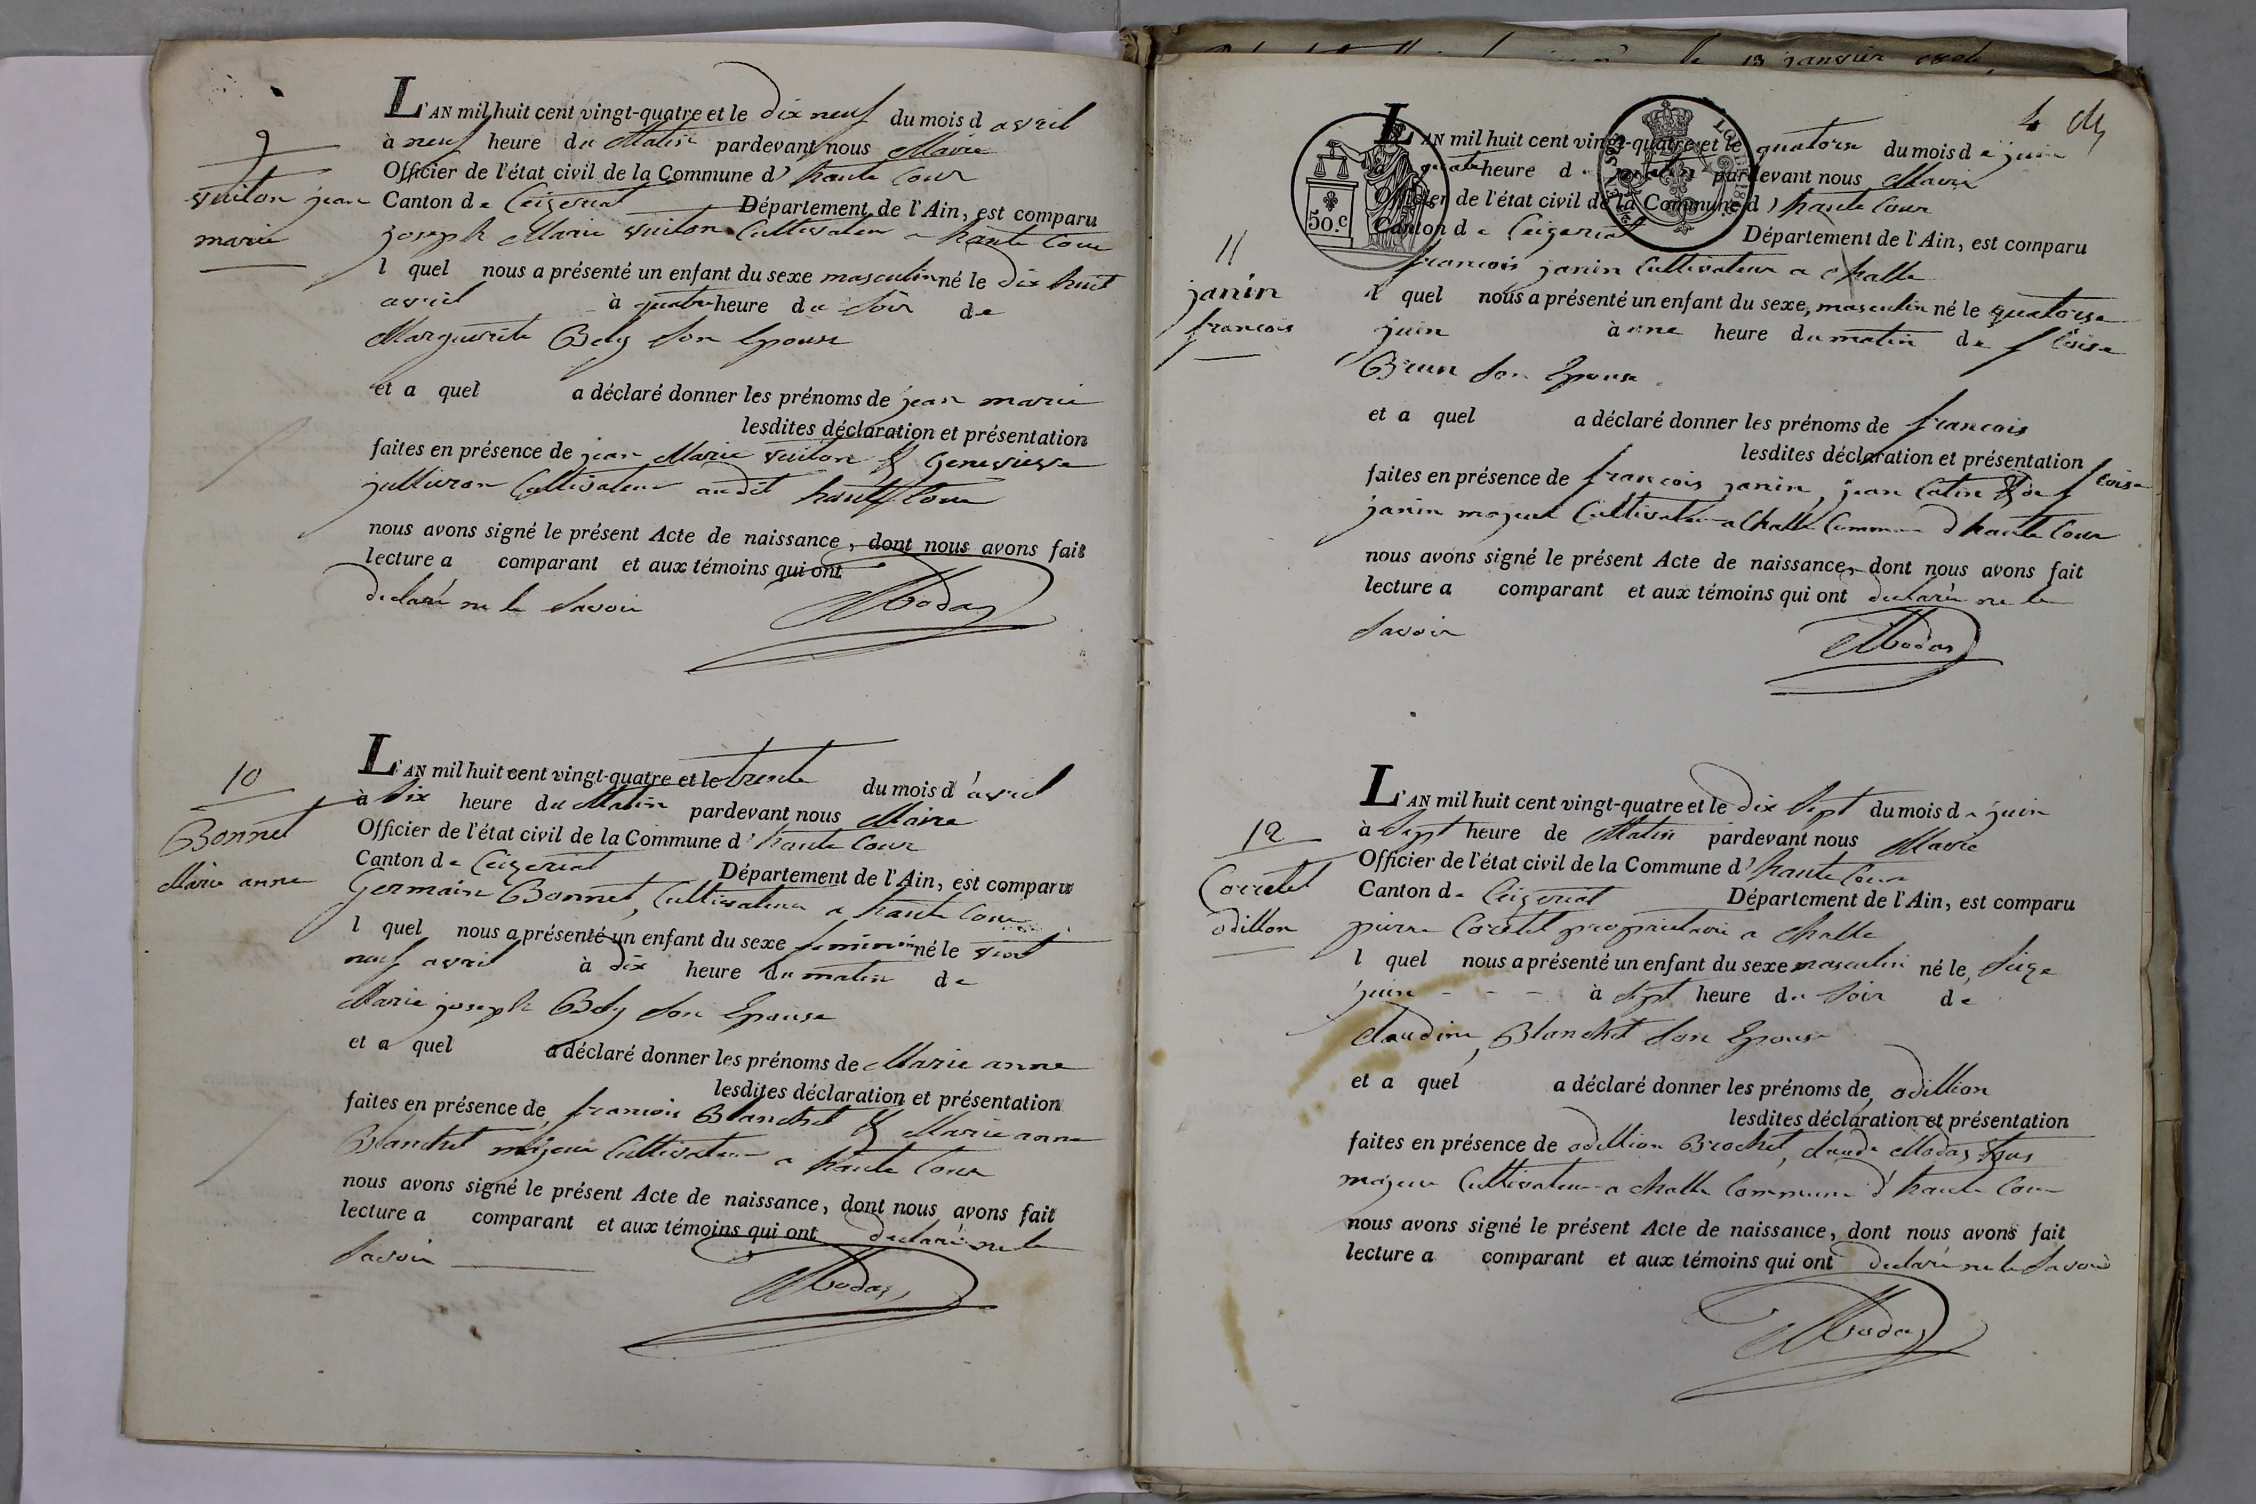 9
vuiton jean
marie
L'AN mil huit cent vingt-quatre et le dix neuf du mois d avril
à neuf heure du Matin pardevant nous Maire
Officier de l'état civil de la Commune d' haute Cour
Canton de Ceizeriat Département de l'Ain, est comparu
joseph Marie vuiton Cultivateur a haute Cour
l quel nous a présenté un enfant du sexe masculin né le dix huit
avril à quatre heure du Soir de
Marguerite Bely Son Epouse
et a quel a déclaré donner les prénoms de jean marie
lesdites déclaration et présentation
faites en présence de jean Marie vuiton & Genevieve
Cultivateur audit haute Cour
nous avons signé le présent Acte de naissance, dont nous avons fait
lecture a comparant et aux témoins qui ont
declaré ne le Savoir
Modas
10
Bonnet
Marie anne
L'AN mil huit cent vingt-quatre et le trente du mois d'avril
à dix heure du Matin pardevant nous Maire
Officier de l'état civil de la Commune d' haute Cour
Canton de Ceizeriat Département de l'Ain, est comparu
Germain Bonnet, Cultivateur a haute Cour
l quel nous a présenté un enfant du sexe feminin né le vint
neuf avril à dix heure du matin de
Marie joseph Bely Son Epouse
et a quel a déclaré donner les prénoms de Marie anne
lesdites déclaration et présentation
faites en présence de francois Blanchet & Marie anne
Blanchet majeur Cultivateur a haute Cour
nous avons signé le présent Acte de naissance, dont nous avons fait
lecture a comparant et aux témoins qui ont declaré ne le
Savoir
Modas
le 13 janvier
4
50.C
11
janin
francois
L'AN mil huit cent vingt-quatre et le quatorse du mois de juin
à quatre heure d matin pardevant nous Maire
Officier de l'état civil de la Commune d' haute Cour
Canton de Ceizeriat Département de l'Ain, est comparu
francois janin Cultivateur a Challe
l quel nous a présenté un enfant du sexe masculin né le quatorse
juin à une heure du matin de
Brun Son Epouse
et a quel a déclaré donner les prénoms de francois
lesdites déclaration et présentation
faites en présence de francois janin, jean Catin
janin majeur Cultivateur a Challe Commune d'haute Cour
nous avons signé le présent Acte de naissance, dont nous avons fait
lecture a comparant et aux témoins qui ont declaré ne le
Savoir
Modas
12
Corretet
odillon
L'AN mil huit cent vingt-quatre et le dix Sept du mois de juin
à Sept heure de Matin pardevant nous Maire
Officier de l'état civil de la Commune d' haute Cour
Canton de Ceizeriat Département de l'Ain, est comparu
pierre Corretet proprietaire a Challe
l quel nous a présenté un enfant du sexe masculin né le Seize
juin - - - à Sept heure du Soir de
Claudine Blanchet Son Epouse
et a quel a déclaré donner les prénoms de odillion
lesdites déclaration et présentation
faites en présence de odillion Brochet, claude Modas tous
majeur Cultivateur a Challe Commune d'haute Cour
nous avons signé le présent Acte de naissance, dont nous avons fait
lecture a comparant et aux témoins qui ont declaré ne le Savoir
Modas